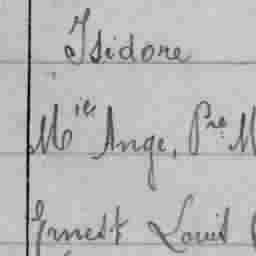 Isidore
Mie Ange, Pre M
Ernest Louis